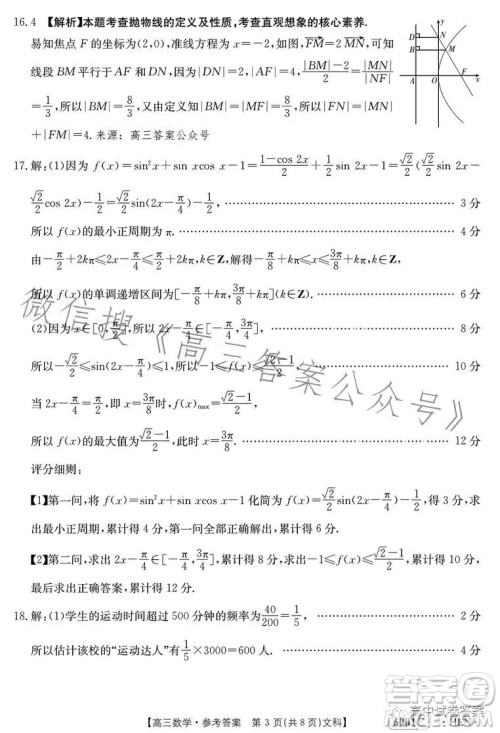 16.4 【解析】本题考查抛物线的定义及性质,考查直观想象的核心素养.
易知焦点 F 的坐标为(2,0),准线方程为 x=-2,如图,因为 FM=2MN,可知
线段 BM 平行于 AF 和 DN,因为|DN|=2,|AF|=4,所以 (|BM|-2)/2=|MN|/|NF|
=1/3,所以|BM|=8/3,又由定义知|BM|=|MF|=8/3,且|MN|=4/3,所以|NM|
+|FM|=4.来源:高三答案公众号
17.解:(1)因为 f(x)=sin²x+sin xcos x-1=(1-cos 2x)/2+1/2 sin 2x-1=√2/2(√2/2 sin 2x-
√2/2 cos 2x)-1/2=√2/2 sin(2x-π/4)-1/2, 3 分
所以 f(x)的最小正周期为 π. 4 分
由-π/2+2kπ≤2x-π/4≤π/2+2kπ,k∈Z,解得-π/8+kπ≤x≤3π/8+kπ,k∈Z,
所以 f(x)的单调递增区间为[-π/8+kπ,3π/8+kπ],k∈Z. 6 分
(2)因为 x∈[0,π/2],所以 2x-π/4∈[-π/4,3π/4], 8 分
所以-√2/2≤sin(2x-π/4)≤1,所以-1≤f(x)≤(√2-1)/2. 10 分
当 2x-π/4=π/2,即 x=3π/8时,f(x)max=(√2-1)/2,
所以 f(x)的最大值为(√2-1)/2,此时 x=3π/8. 12 分
评分细则:
【1】第一问,将 f(x)=sin²x+sin xcos x-1 化简为 f(x)=√2/2 sin(2x-π/4)-1/2,得 3 分,
求出最小正周期,累计得 4 分,直到第一问正确解出,累计得 6 分.
【2】第二问,求出 2x-π/4∈[-π/4,3π/4],累计得 8 分,求出-1≤f(x)≤(√2-1)/2,累计得 10
分,求出正确答案,累计得 12 分.
18.解:(1)学生的运动时间超过 500 分钟的频率为40/200=1/5, 2 分
所以估计该校的“运动达人”有1/5×3000=600 人. 4 分
【高三数学·参考答案 第 3 页(共 8 页)文科】
微信搜《高三答案公众号》
高中试卷答案